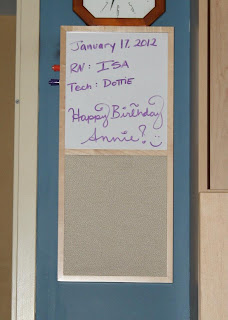 January 17, 2012
RN: ISA
Tech: DOTTIE
Happy Birthday
Annie!